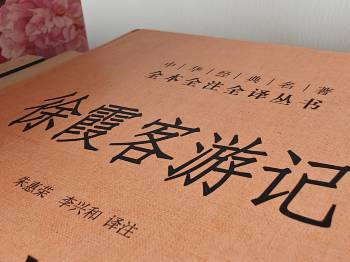 中华经典名著
全本全注全译丛书
徐霞客游记
朱惠荣 李兴和 译注